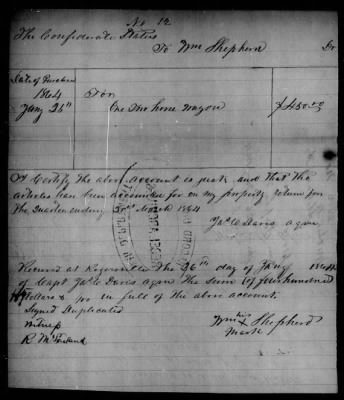 No 12
The Confederate States
To Wm Shepherd Dr
Date of Purchase
1864 For
Jany 26th One Two horse wagon $450.00
I Certify the above account is just and that the
articles has been accounted for on my property return for
the Quarter ending 31st March 1864
Jas W Davis agen
Received at the 26th day of Jany 1864
of Capt Jas W Davis agen the sum of four hundred
Dollars & no in full of the above account
Signed Duplicated
Witness
his
Wm X Shepherd
mark